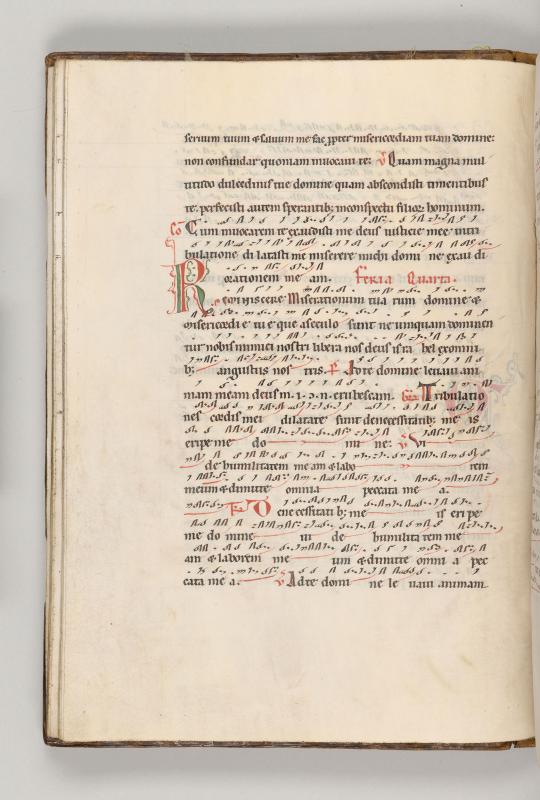 seruum tuum & saluum me fac ppter misericordiam tuam domine:
non confundar quoniam inuocaui te: V Quam magna mul
titudo dulcedinis tue domine quam abscondisti timentibus
te: perfecisti autem sperantib; in conspectu filior hominum.
Co Cum inuocarem te exaudisti me deus iusticie mee in tri
bulatione dilatasti me miserere michi domi ne exau di
orationem me am. Feria Quarta.
Reminiscere Miserationum tua rum domine &
misericordi e tu e que a seculo sunt ne umquam dominen
tur nobis inimici nostri libera nos deus isra hel ex omni
b; angustiis nos tris. Ps Adte domine leuaui am
mam meam deus m. i. .n. erubescam. Tribulatio
nes cordis mei dilatate sunt de necessitatib; me is
eripe me do mi ne: V Vi
de humilitatem me am & labo rem
meum & dimitte omnia peccata me a.
De necessitati b; me is eri pe
me do mine vi de humilita tem me
am & laborem me um & dimitte omni a pec
cata me a. V Adte domi ne le uaui animam